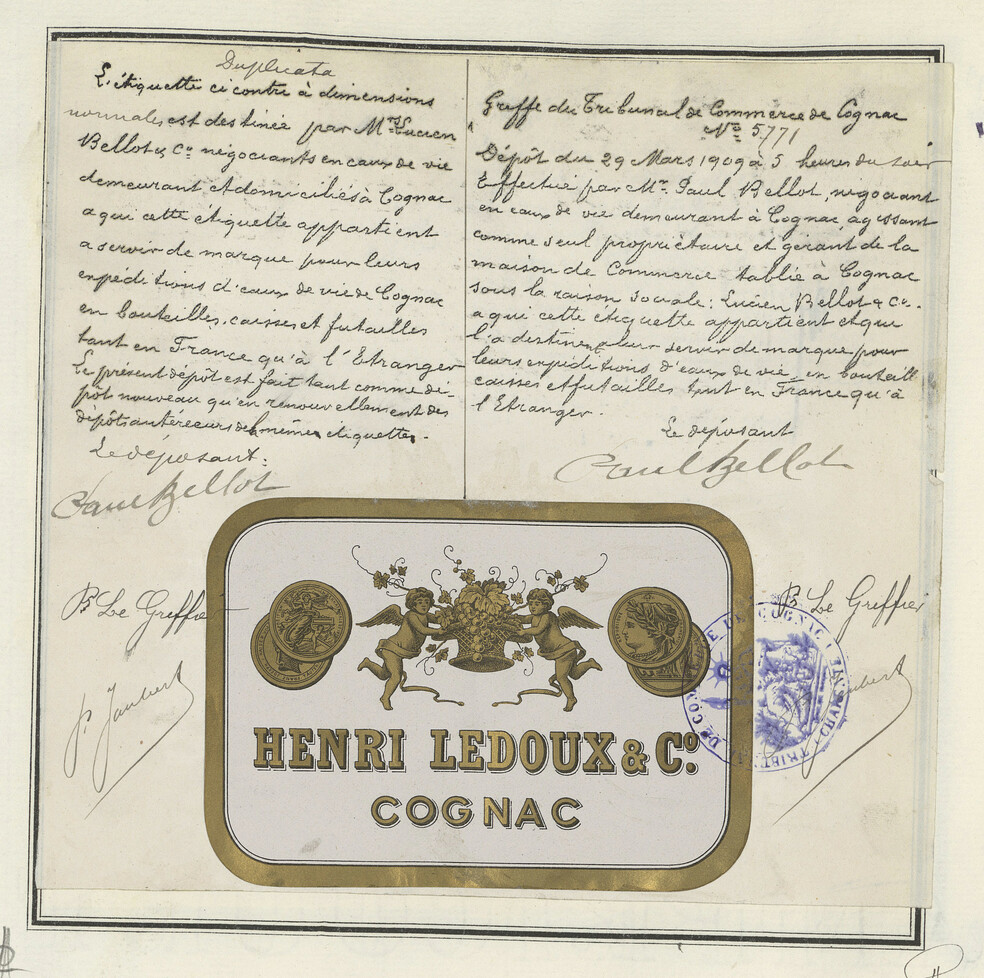 Duplicata
L'étiquette ci contre à dimensions
normales est destinée par Mrs Lucien
Bellot & Co négociants en eaux de vie
demeurant et domiciliés à Cognac
a qui cette étiquette appartient
a servir de marque pour leurs
expéditions d'eaux de vie de Cognac
en bouteilles, caisses et futailles
tant en France qu'à l'Etranger
Le présent dépôt est fait tant comme dé-
pôt nouveau qu'en renouvellement des
dépôts antérieurs de mêmes étiquettes.
Le déposant:
Paul Bellot
Pr Le Greffier
P. Jaubert
Greffe du Tribunal de Commerce de Cognac
No 5771
Dépôt du 29 Mars 1909 à 5 heures du soir
Effectué par Mr. Paul Bellot, négociant
en eaux de vie demeurant à Cognac, agissant
comme seul propriétaire et gérant de la
maison de Commerce tablie à Cognac
sous la raison sociale: Lucien Bellot & Co.
a qui cette étiquette appartient et qui
l'a destine a leur servir de marque pour
leurs expéditions d'eaux de vie, en bouteill
caisses et futailles tant en France qu'à
l'Etranger.
Le déposant
Paul Bellot
Pr Le Greffier
HENRI LEDOUX & Co.
COGNAC
TRIBUNAL DE COMMERCE DE COGNAC